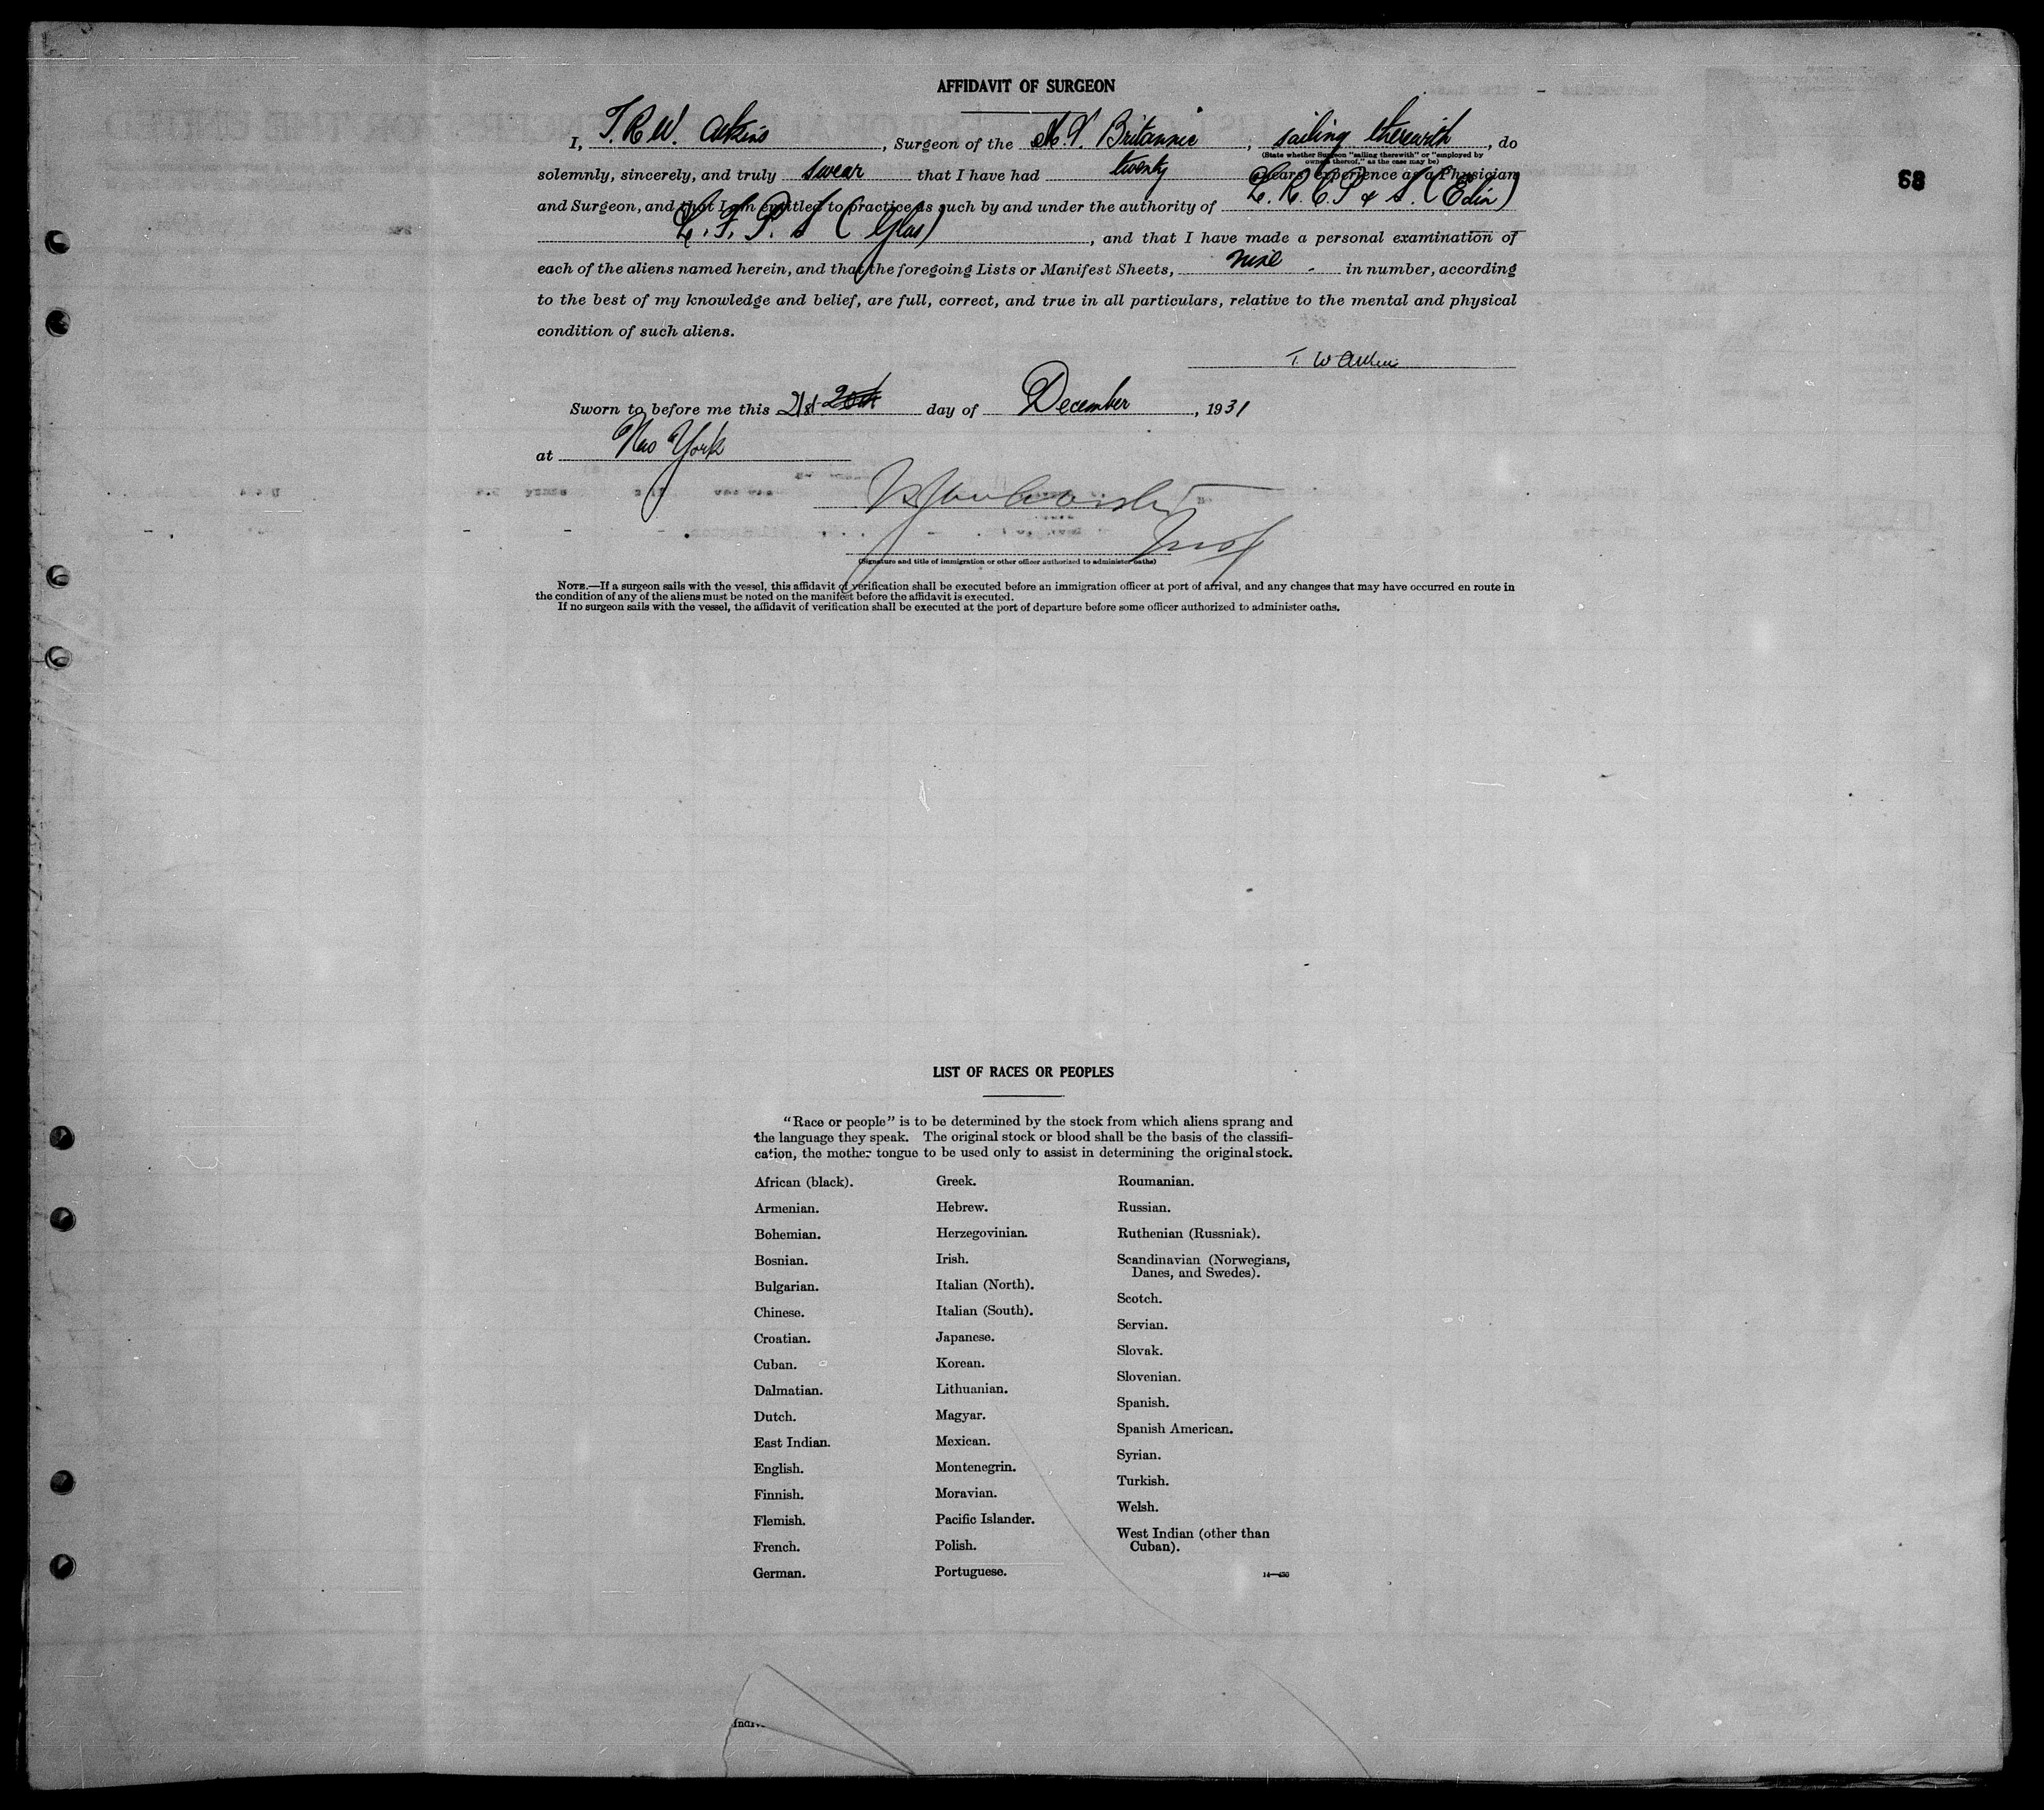 AFFIDAVIT OF SURGEON
I, T. R. W. Atkins, Surgeon of the M.V. Britannic, sailing therewith, do
(State whether Surgeon "sailing therewith" or "employed by
owners thereof," as the case may be)
solemnly, sincerely, and truly swear that I have had twenty years' experience as a Physician
68
and Surgeon, and that I am entitled to practice as such by and under the authority of L.R.C.P & S. (Edin)
L.F.P.S (Glas), and that I have made a personal examination of
each of the aliens named herein, and that the foregoing Lists or Manifest Sheets, in number, according
to the best of my knowledge and belief, are full, correct, and true in all particulars, relative to the mental and physical
condition of such aliens.
T. W Atkins
Sworn to before me this 21st 20th day of December, 1931
at New York
(Signature and title of immigration or other officer authorized to administer oaths)
NOTE.—If a surgeon sails with the vessel, this affidavit of verification shall be executed before an immigration officer at port of arrival, and any changes that may have occurred en route in
the condition of any of the aliens must be noted on the manifest before the affidavit is executed.
If no surgeon sails with the vessel, the affidavit of verification shall be executed at the port of departure before some officer authorized to administer oaths.
LIST OF RACES OR PEOPLES
"Race or people" is to be determined by the stock from which aliens sprang and
the language they speak. The original stock or blood shall be the basis of the classifi-
cation, the mother tongue to be used only to assist in determining the original stock.
African (black).
Armenian.
Bohemian.
Bosnian.
Bulgarian.
Chinese.
Croatian.
Cuban.
Dalmatian.
Dutch.
East Indian.
English.
Finnish.
Flemish.
French.
German.
Greek.
Hebrew.
Herzegovinian.
Irish.
Italian (North).
Italian (South).
Japanese.
Korean.
Lithuanian.
Magyar.
Mexican.
Montenegrin.
Moravian.
Pacific Islander.
Polish.
Portuguese.
Roumanian.
Russian.
Ruthenian (Russniak).
Scandinavian (Norwegians,
Danes, and Swedes).
Scotch.
Servian.
Slovak.
Slovenian.
Spanish.
Spanish American.
Syrian.
Turkish.
Welsh.
West Indian (other than
Cuban).